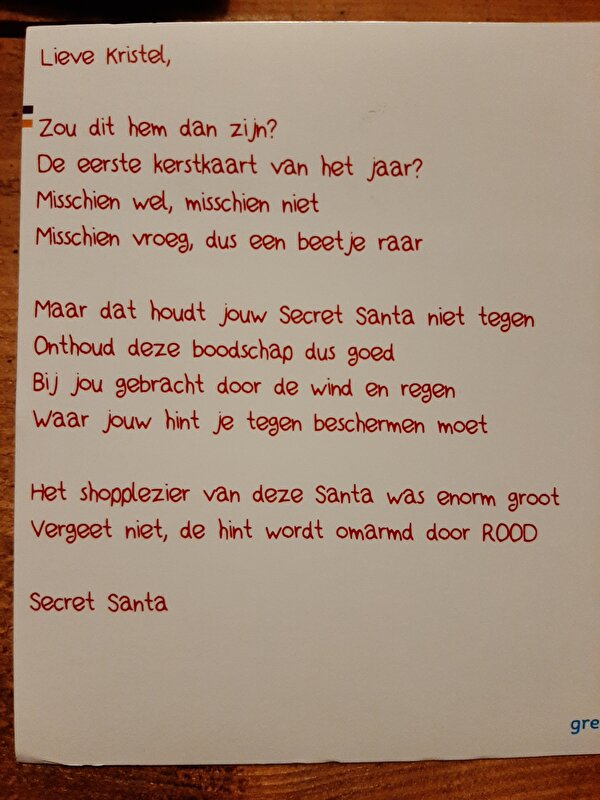 Lieve Kristel,
Zou dit hem dan zijn?
De eerste kerstkaart van het jaar?
Misschien wel, misschien niet
Misschien vroeg, dus een beetje raar
Maar dat houdt jouw Secret Santa niet tegen
Onthoud deze boodschap dus goed
Bij jou gebracht door de wind en regen
Waar jouw hint je tegen beschermen moet
Het shopplezier van deze Santa was enorm groot
Vergeet niet, de hint wordt omarmd door ROOD
Secret Santa
gre